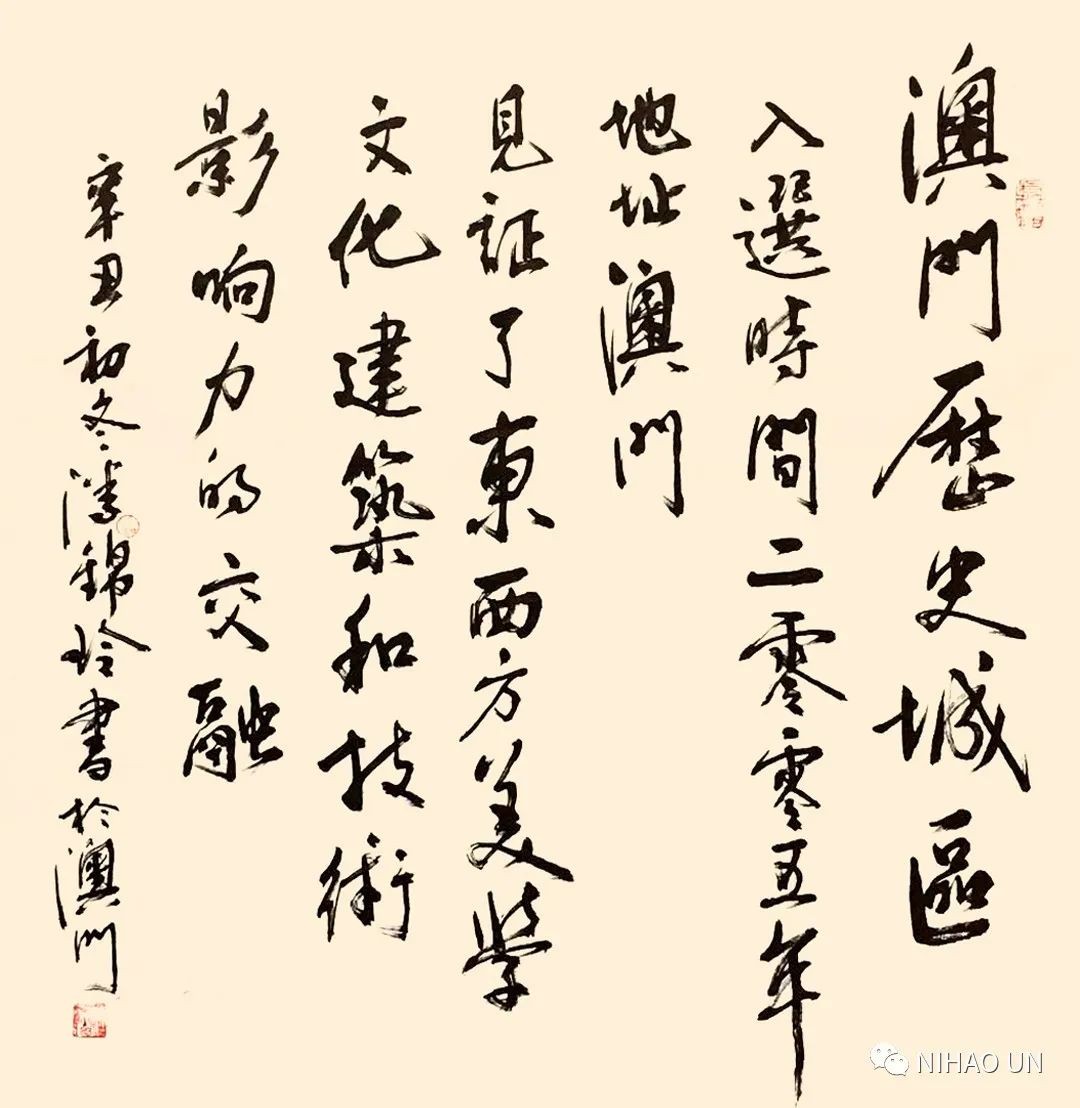 澳門歷史城區
入選時間二零零五年
地址澳門
見証了東西方美學
文化建築和技術
影响力的交融
辛丑初冬錦玲書於澳門
NIHAO UN